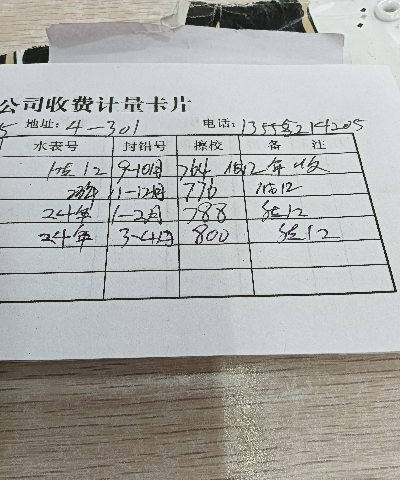 公司收费计量卡片
5 地址: 4-301 电话: 13558214205
水表号 封铅号 擦校 备 注
12 9-10月 764 12年收
23年 11-12月 776 12
24年 1-2月 788 12
24年 3-4月 800 12